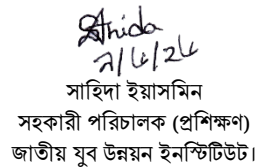 Shida
সাহিদা ইয়াসমিন
সহকারী পরিচালক (প্রশিক্ষণ)
জাতীয় যুব উন্নয়ন ইনস্টিটিউট।